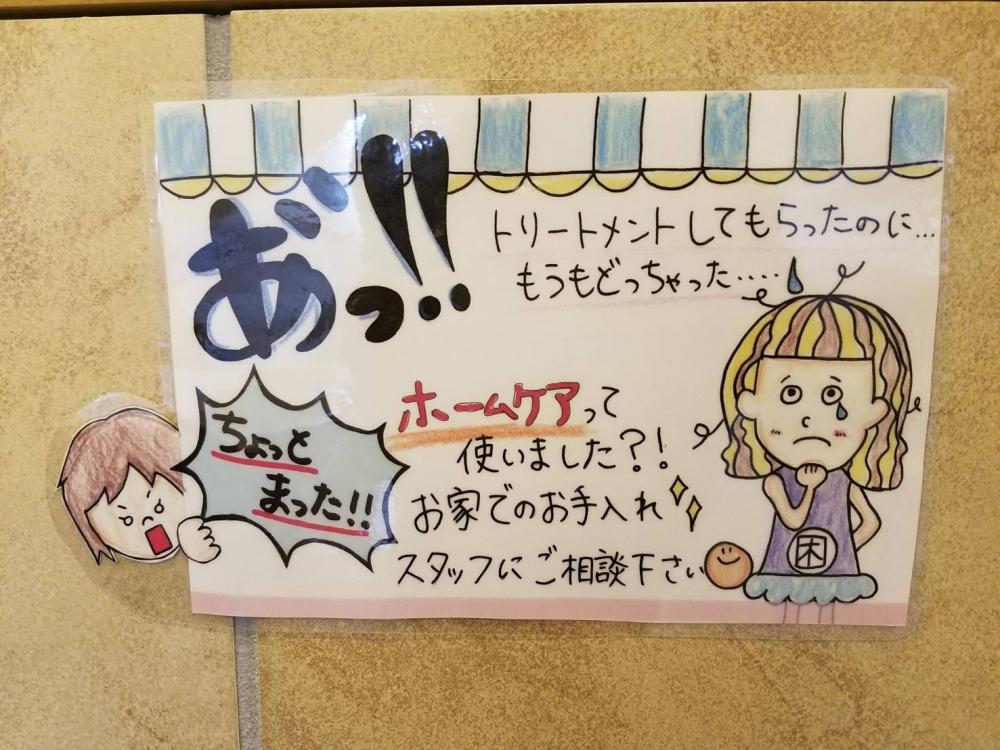 あっ!!
トリートメントしてもらったのに...
もうもどっちゃった.....
ちょっと
まった!!
ホームケアって
使いました?!
お家でのお手入れ
スタッフにご相談下さい
困